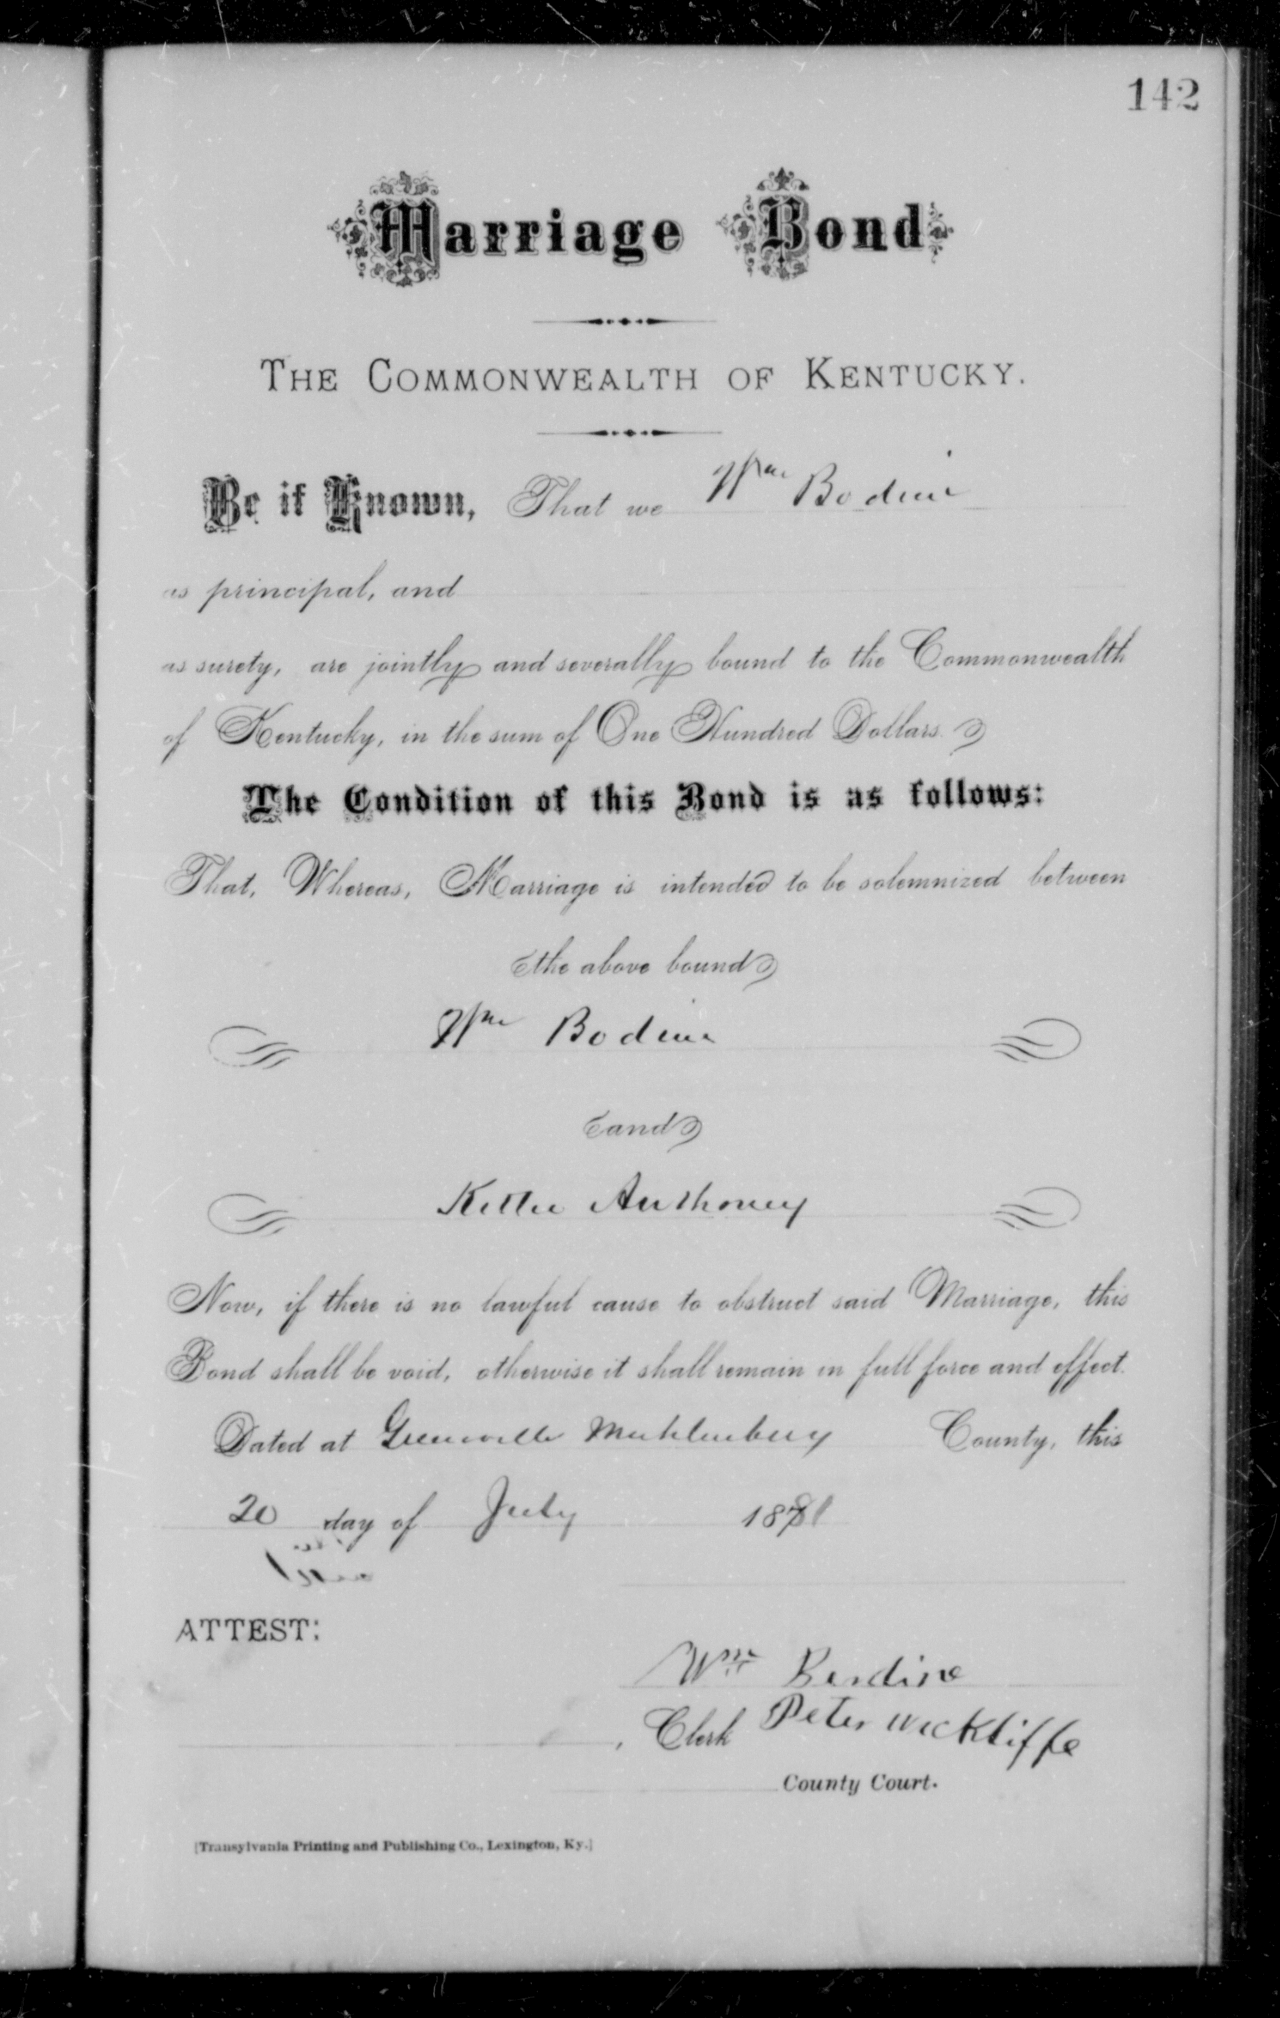 142
Marriage Bond
THE COMMONWEALTH OF KENTUCKY.
Be it Known, That we Wm Bodine
as principal, and
as surety, are jointly and severally bound to the Commonwealth
of Kentucky, in the sum of One Hundred Dollars.
The Condition of this Bond is as follows:
That, Whereas, Marriage is intended to be solemnized between
the above bound
Wm Bodine
and
Kittie Anthoney
Now, if there is no lawful cause to obstruct said Marriage, this
Bond shall be void, otherwise it shall remain in full force and effect.
Dated at Greenville Muhlenberg County, this
20 day of July 1881
ATTEST:
Wm Berdine
, Clerk Peter Wickliffe
County Court.
[Transylvania Printing and Publishing Co., Lexington, Ky.]